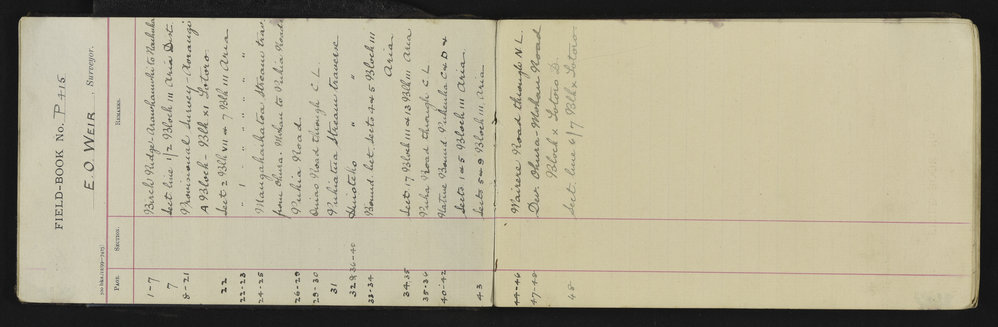 FIELD-BOOK No. P415
E. O. WEIR Surveyor.
700 bks./12/09—7475]
PAGE. SECTION. REMARKS.
1-7 Birch Ridge-
7 Sect line 1/2 Block III Aria Dist
8-21 Provisional Survey - Aorangi
A Block - Blk XI Totoro
22 Sect 2 Blk VII & 7 Blk III Aria
22-23 " 1 " " " " "
24-25 Mangahauhatoa Stream trav.
from Ohura. Mokau to Pukia Road
26-29 Pukia Road.
29-30 Road through C L
31 Pukiatua Stream traverse
32 & 36-40 "
33-34 Bound. bet. Sects 4 & 5 Block III
Aria
34.35 Sect 17 Block III & 13 Blk III Aria
35-36 Puha Road through C L
40-42 Native Bound Pukeuha C & D &
Sects 1 & 5 Block III Aria
43 Sects 5 & 9 Block III Aria
44-46 Wairere Road through N L
47-48 Dev. Ohura-Mokau Road
Block X Totoro D.
48 Sect. line 6/7 Blk X Totoro